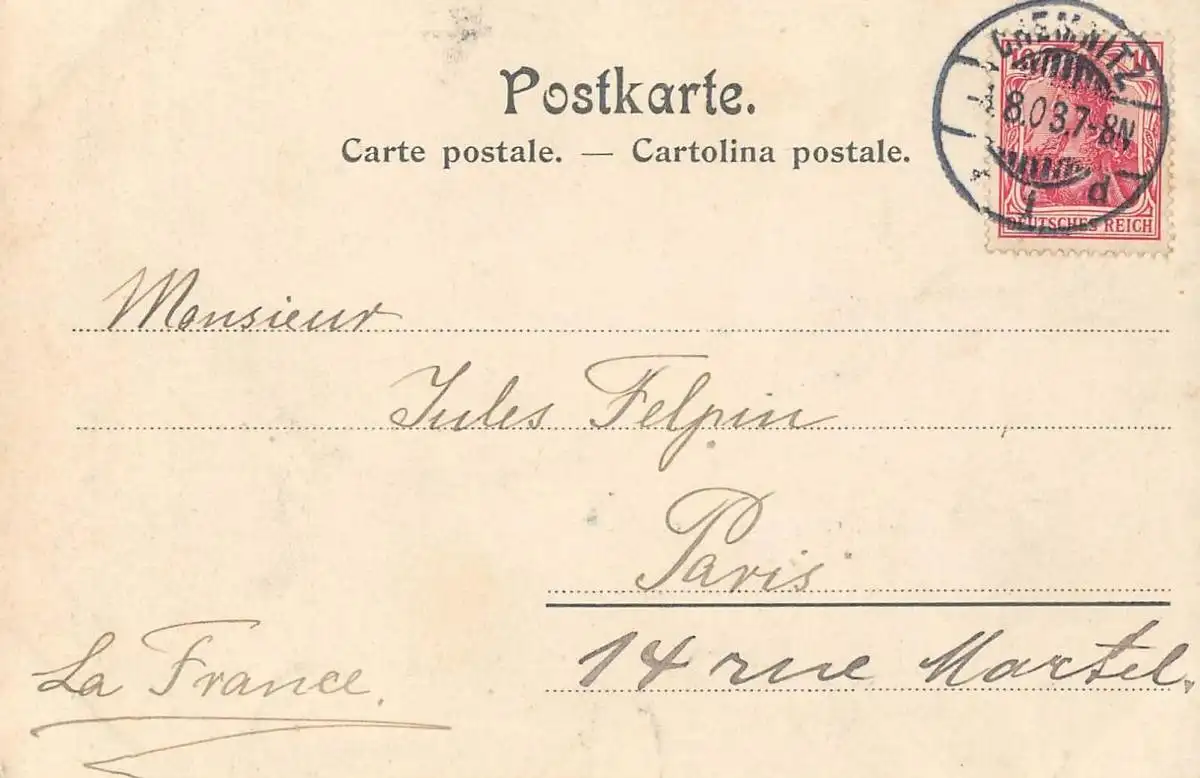 Postkarte.
Carte postale. — Cartolina postale.
CHEMNITZ
8.03,7-8N
1 d
10 10
DEUTSCHES REICH
Monsieur
Jules Felpin
Paris
14 rue Martel.
La France.